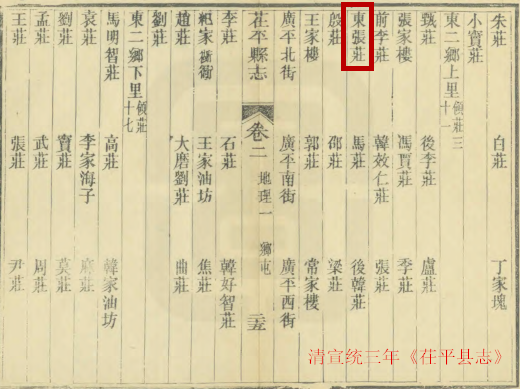 朱莊 白莊 丁家塊
小寶莊
東二鄉上里 領莊三十一
甄莊 後李莊 盧莊
張家樓 馮賈莊 季莊
前李莊 韓效仁莊 張莊
東張莊 馬莊 後韓莊
殷莊 邵莊 梁莊
王家樓 郭莊 常家樓
廣平北街 廣平南街 廣平西街
茌平縣志 卷二 地理一 鄉屯 二十五
李莊 石莊 韓好智莊
紀家衚衕 王家油坊 焦莊
趙莊 大磨劉莊 曲莊
劉莊
東二鄉下里 領莊十七
馬明智莊 高莊 韓家油坊
袁莊 李家海子
劉莊 竇莊 莫莊
孟莊 武莊 周莊
王莊 張莊 尹莊
清宣统三年《茌平县志》